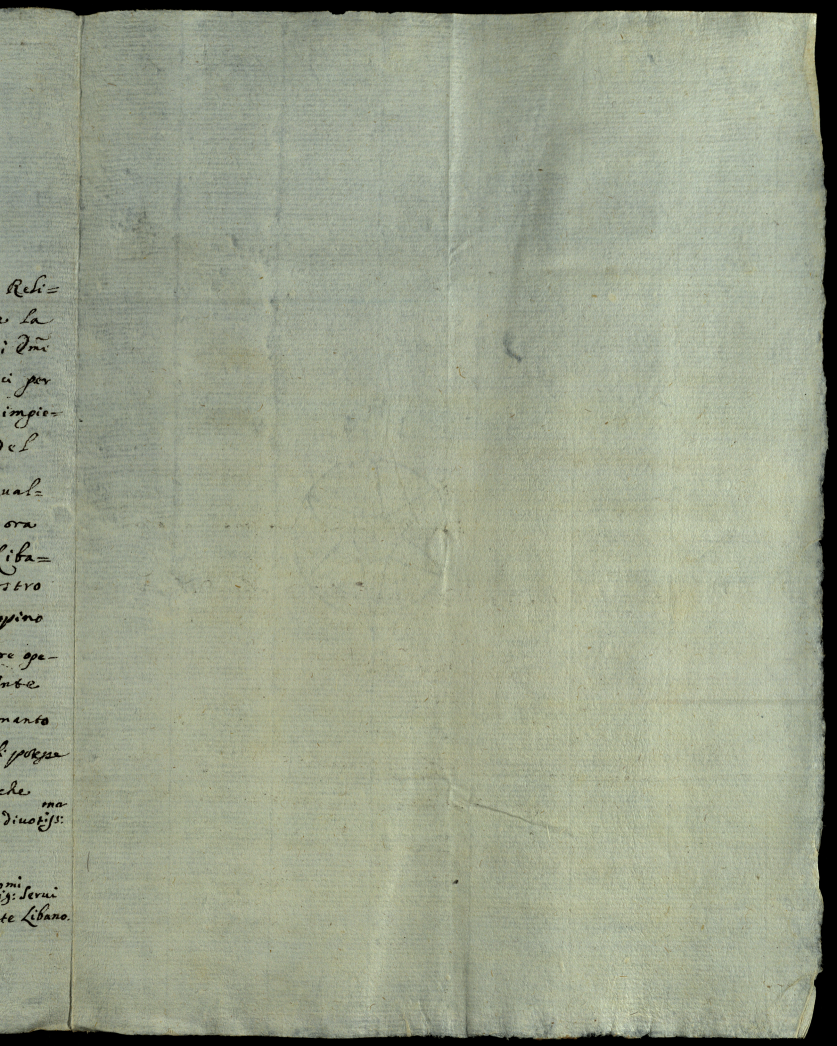 Reli=
la
i
ci per
impie=
del
ual=
ora
Liba=
stro
ppino
re ope-
nte
manto
potesse
che
divotiss:ma
omi
ig: Servi
te Libano.